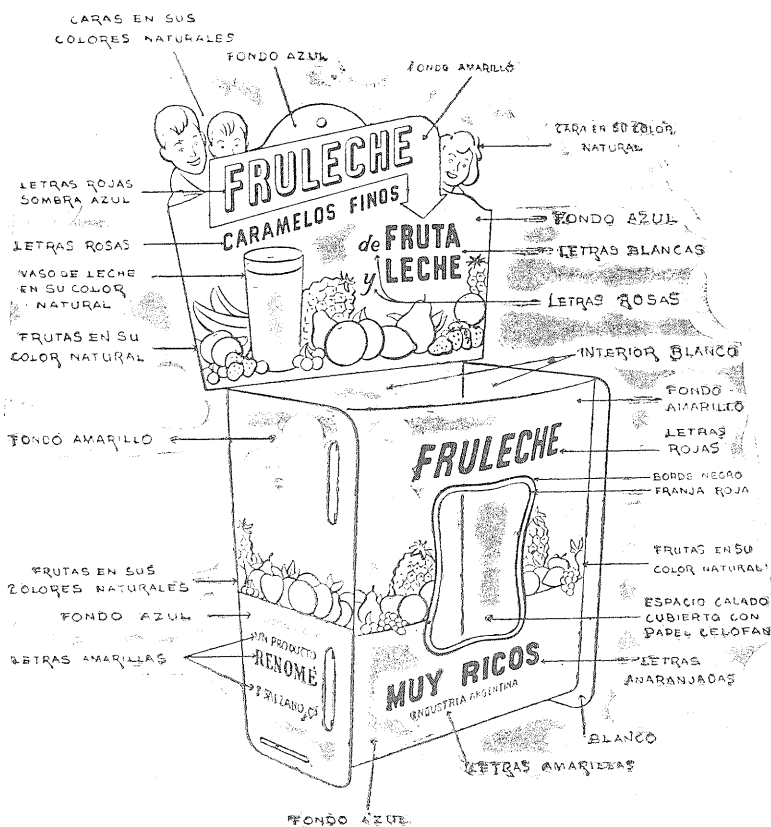 CARAS EN SUS
COLORES NATURALES
FONDO AZUL
FONDO AMARILLO
CARA EN SU COLOR
NATURAL
FRULECHE
LETRAS ROJAS
SOMBRA AZUL
CARAMELOS FINOS
FONDO AZUL
LETRAS ROSAS
de FRUTA
y LECHE
LETRAS BLANCAS
VASO DE LECHE
EN SU COLOR
NATURAL
LETRAS ROSAS
FRUTAS EN SU
COLOR NATURAL
INTERIOR BLANCO
FONDO
AMARILLO
FONDO AMARILLO
FRULECHE
LETRAS
ROJAS
BORDE NEGRO
FRANJA ROJA
FRUTAS EN SUS
COLORES NATURALES
FRUTAS EN SU
COLOR NATURAL
FONDO AZUL
ESPACIO CALADO
CUBIERTO CON
PAPEL CELOFAN
LETRAS AMARILLAS
UN PRODUCTO
RENOMÉ
MUY RICOS
INDUSTRIA ARGENTINA
LETRAS
ANARANJADAS
BLANCO
LETRAS AMARILLAS
FONDO AZUL